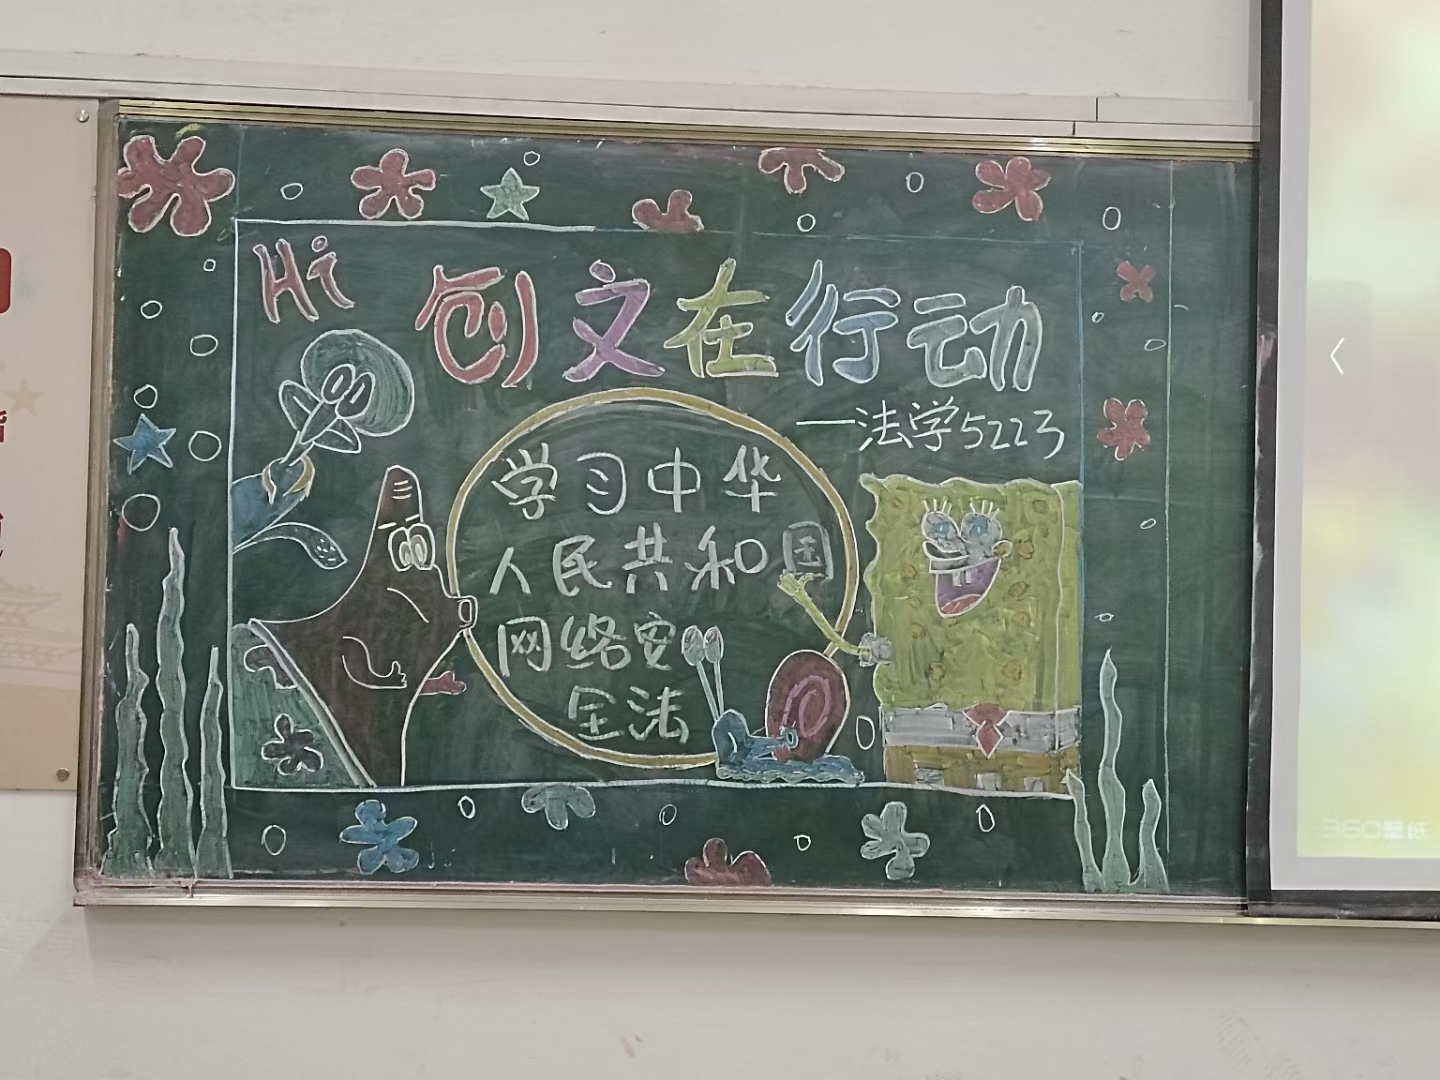 Hi
创文在行动
—法学5223
学习中华
人民共和国
网络安
全法
360壁纸